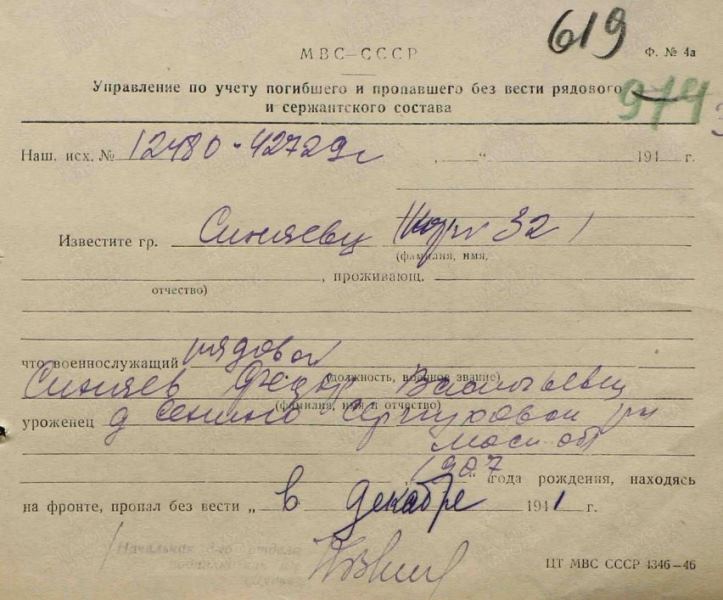 619
МВС—СССР
Ф. № 4а
Управление по учету погибшего и пропавшего без вести рядового
и сержантского состава
914
Наш. исх. № 12480-42729с „ “ 194 г.
Известите гр. Синяеву 32
(фамилия, имя,
отчество) , проживающ.
что военнослужащий рядовой
(должность, военное звание)
Синяев Федор Васильевич
(фамилия, имя и отчество)
уроженец д Сенино Серпуховой рн
Моск обл
1907 года рождения, находясь
на фронте, пропал без вести „ в декабре 1941 г.
Начальник 3-го отдела
ЦТ МВС СССР 4346—46